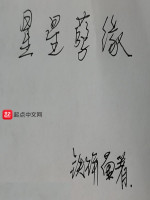 星星孽缘
起点中文网
著